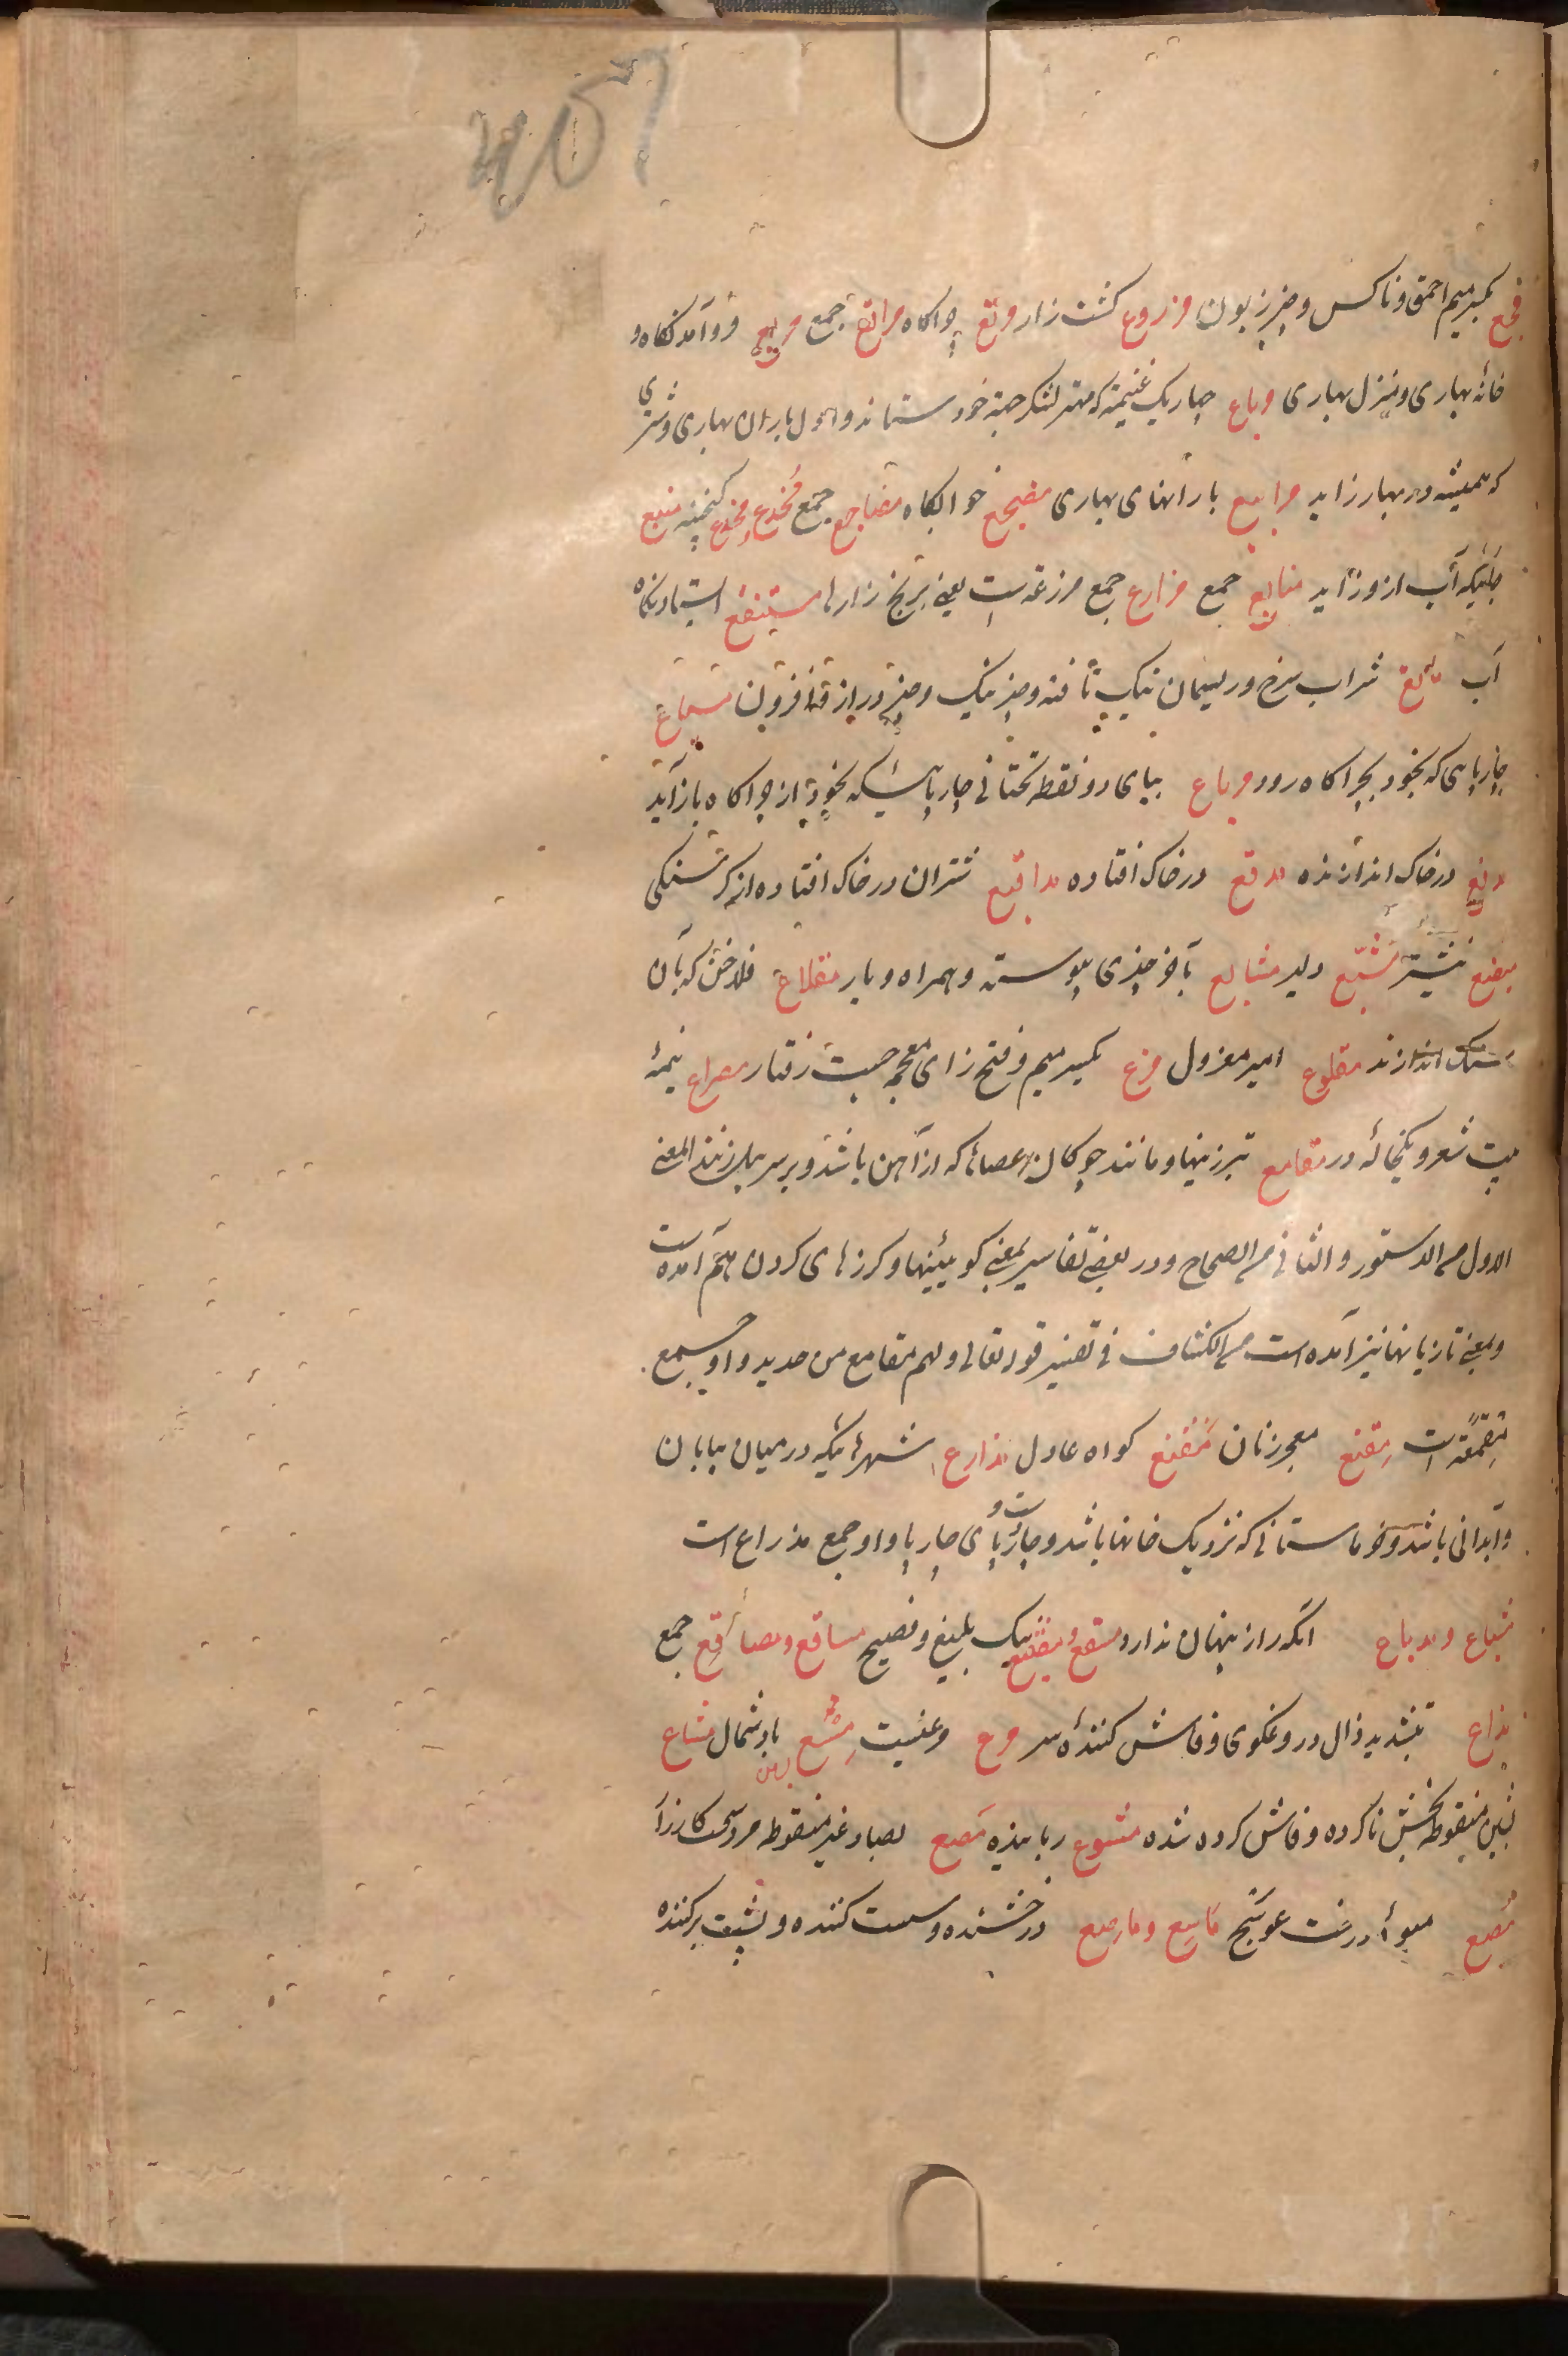 407
مجع بکسر میم احمق و ناکس و چیز زبون مزروع کشت زار مرتع چراکاه مراتع جمع مربع فروآمدنکاه و
خانهٔ بهاری و منزل بهاری مرباع چاریک غنیمة که مهتر لشکر جهة خود ستاند و اول باران بهاری و شتری
که همیشه در بهار زاید مرابیع بارانهای بهاری مضجع خوابکاه مضاجع جمع مُخدع و مِخدع کنجینه منبع
جائیکه آب ازو زاید منابع جمع مزارع جمع مزرعه است یعنی برنج زارها مستنقع استادنکاه
آب ماتع شراب سرخ و ریسمان نیک تافته و چیز نیک و چیز دراز و افزون مسیاع
چارپایی که بخود بچراکاه رود مریاع بیای دو نقطه تحتانی چارپائیکه بخود از چراکاه باز آید
مدقع در خاک اندازنده مدقع در خاک افتاده مداقیع شتران در خاک افتاده از کرسنکی
مبضع نیشتر مشیّع دلیر مشایع بآخر چیزی پیوسته و همراه و یار مقلاع فلاخن که بآن
سنک اندازند مقلوع امیر معزول مزع بکسر میم و فتح زای معجمه رفتار مصراع نیمهٔ
بیت شعر و یکخانهٔ در مقامع تبرزینها و مانند چوکان عصاها که از آهن باشد و بر سر پیل زنند المعنی
الاول من الدستور و الثانی من الصحاح و در بعضی تفاسیر بمعنی کوبینها و کرزهای کردن هم آمده است
و بمعنی تازیانها نیز آمده است من الکشاف فی تفسیر قوله تعالی ولهم مقامع من حدید و او جمع
مِقمعة است مِقنع معجر زنان مَقنع کواه عادل مذارع شهرهائیکه در میان بیابان
و آبدانی باشد و خرماستانی که نزدیک خانها باشد و دست و پای چارپا و او جمع مذراع است
مشیاع و مذیاع آنکه راز پنهان ندارد مسقع و مصقع نیک بلیغ و فصیح مساقع و مصاقع جمع
مذاع بتشدید ذال دروغکوی و فاش کنندهٔ سر مرع مسع باد شمال مشاع
بشین منقوطه بخش ناکرده و فاش کرده شده مشوع رباینده مَصع بصاد غیر منقوطه مرد سخت کارزار
مُصع میوهٔ درخت عوسج ماصع درخشنده و سست کننده و پشت برکننده